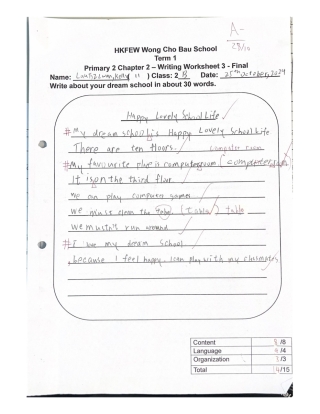 A-
HKFEW Wong Cho Bau School
Term 1
Primary 2 Chapter 2 – Writing Worksheet 3 - Final
Name: ( 11 ) Class: 2 B Date: 25th October, 2024
Write about your dream school in about 30 words.
Happy Lovely School Life
# My dream school is Happy Lovely School Life
There are ten floors. Computer room
# My favourite place is computer room (computer room
It is on the third floor.
We can play computer games
We must clean the (table) table
we mustn't run around
# I love my dream school
, because I feel happy. I can play with my classmates
Content /8
Language /4
Organization /3
Total /15